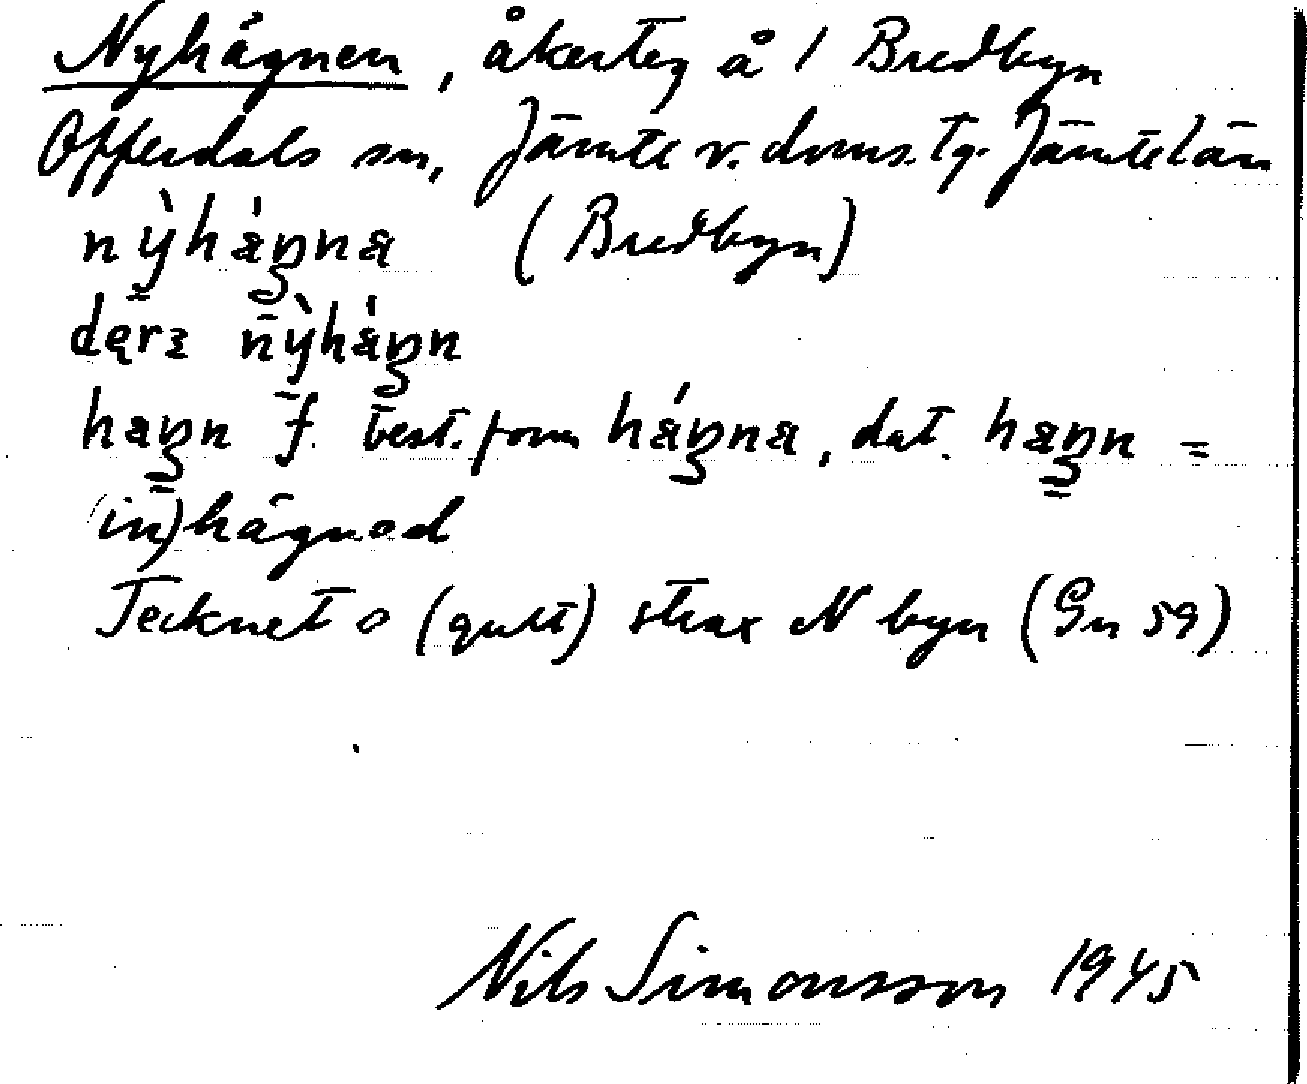 Nyhägnen, åkerteg å 1 Bredbyn
Offerdals sn, Jämte v. doms. tg. Jämtelän
nỳhágna (Bredbyn)
dęrɜ nỳhágn
hagn f. best. form hágna, dat. hagn =
(in)hägnad
Tecknet o (gult) strax N byn (Gn 59)
Nils Simonsson 1945